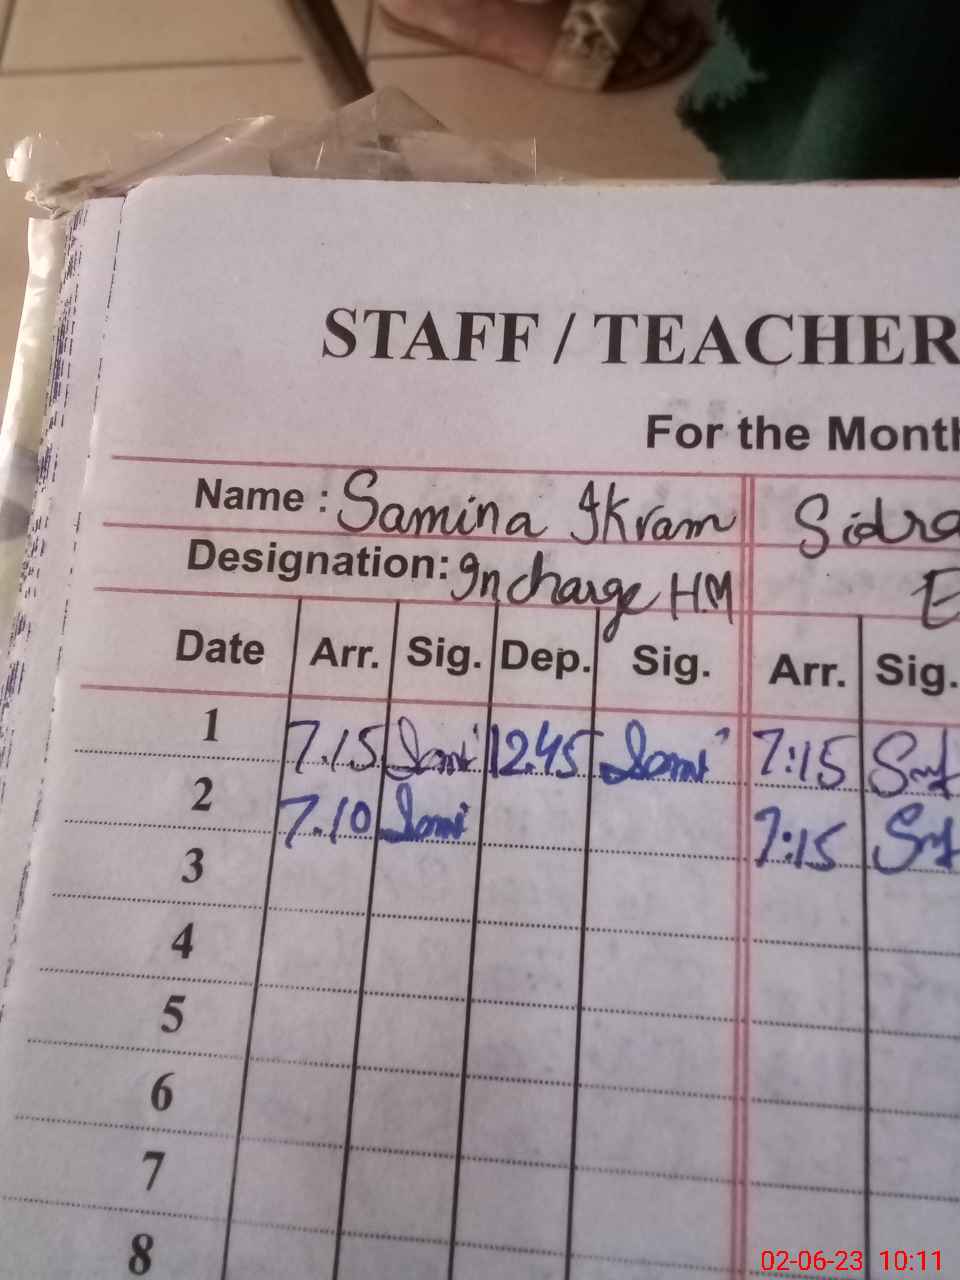 STAFF / TEACHER
For the Month
Name : Samina Ikram Sidra
Designation: Incharge HM E
Date Arr. Sig. Dep. Sig. Arr. Sig.
1 7.15 Sami 12.45 Sami 7:15
2 7.10 Sami 7:15
3
4
5
6
7
8
02-06-23 10:11